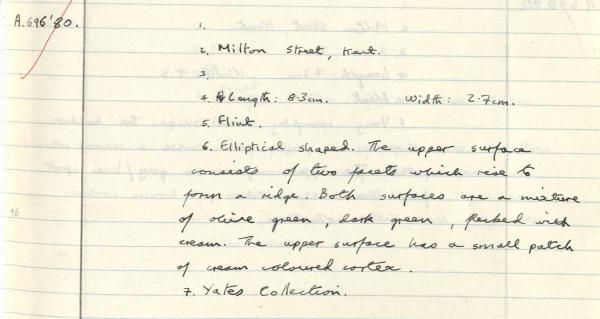 A.696'80.
1.
2. Milton Street, Kent.
3.
4. Length: 8.3cm. Width: 2.7cm.
5. Flint.
6. Elliptical shaped. The upper surface
consists of two facets which rise to
form a ridge. Both surfaces are a mixture
of olive green, dark green, flecked with
cream. The upper surface has a small patch
of cream coloured cortex.
7. Yates Collection.